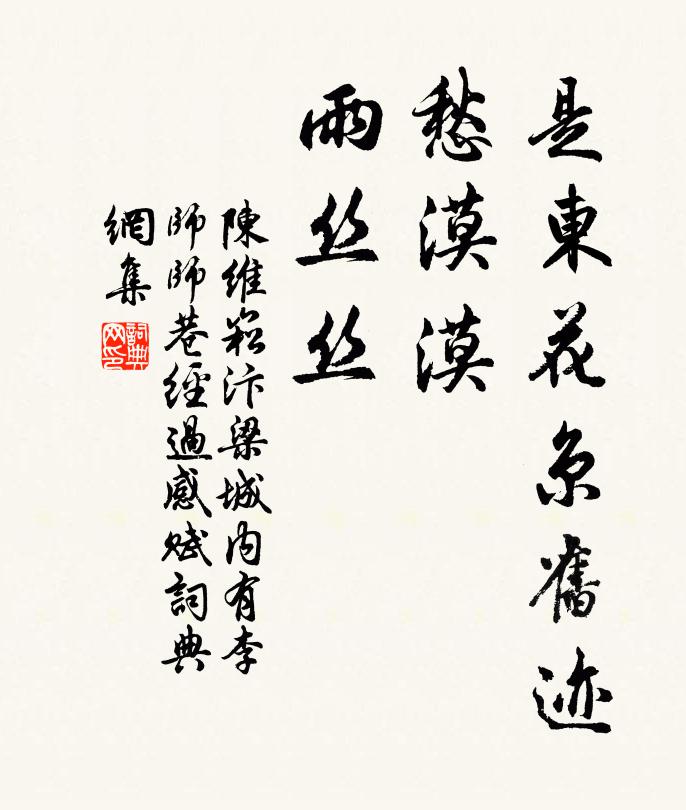 是東花京舊迹
愁漠漠
雨丝丝
陳維崧汴梁城内有李
師師巷經過感赋詞典
網集
詞典网印